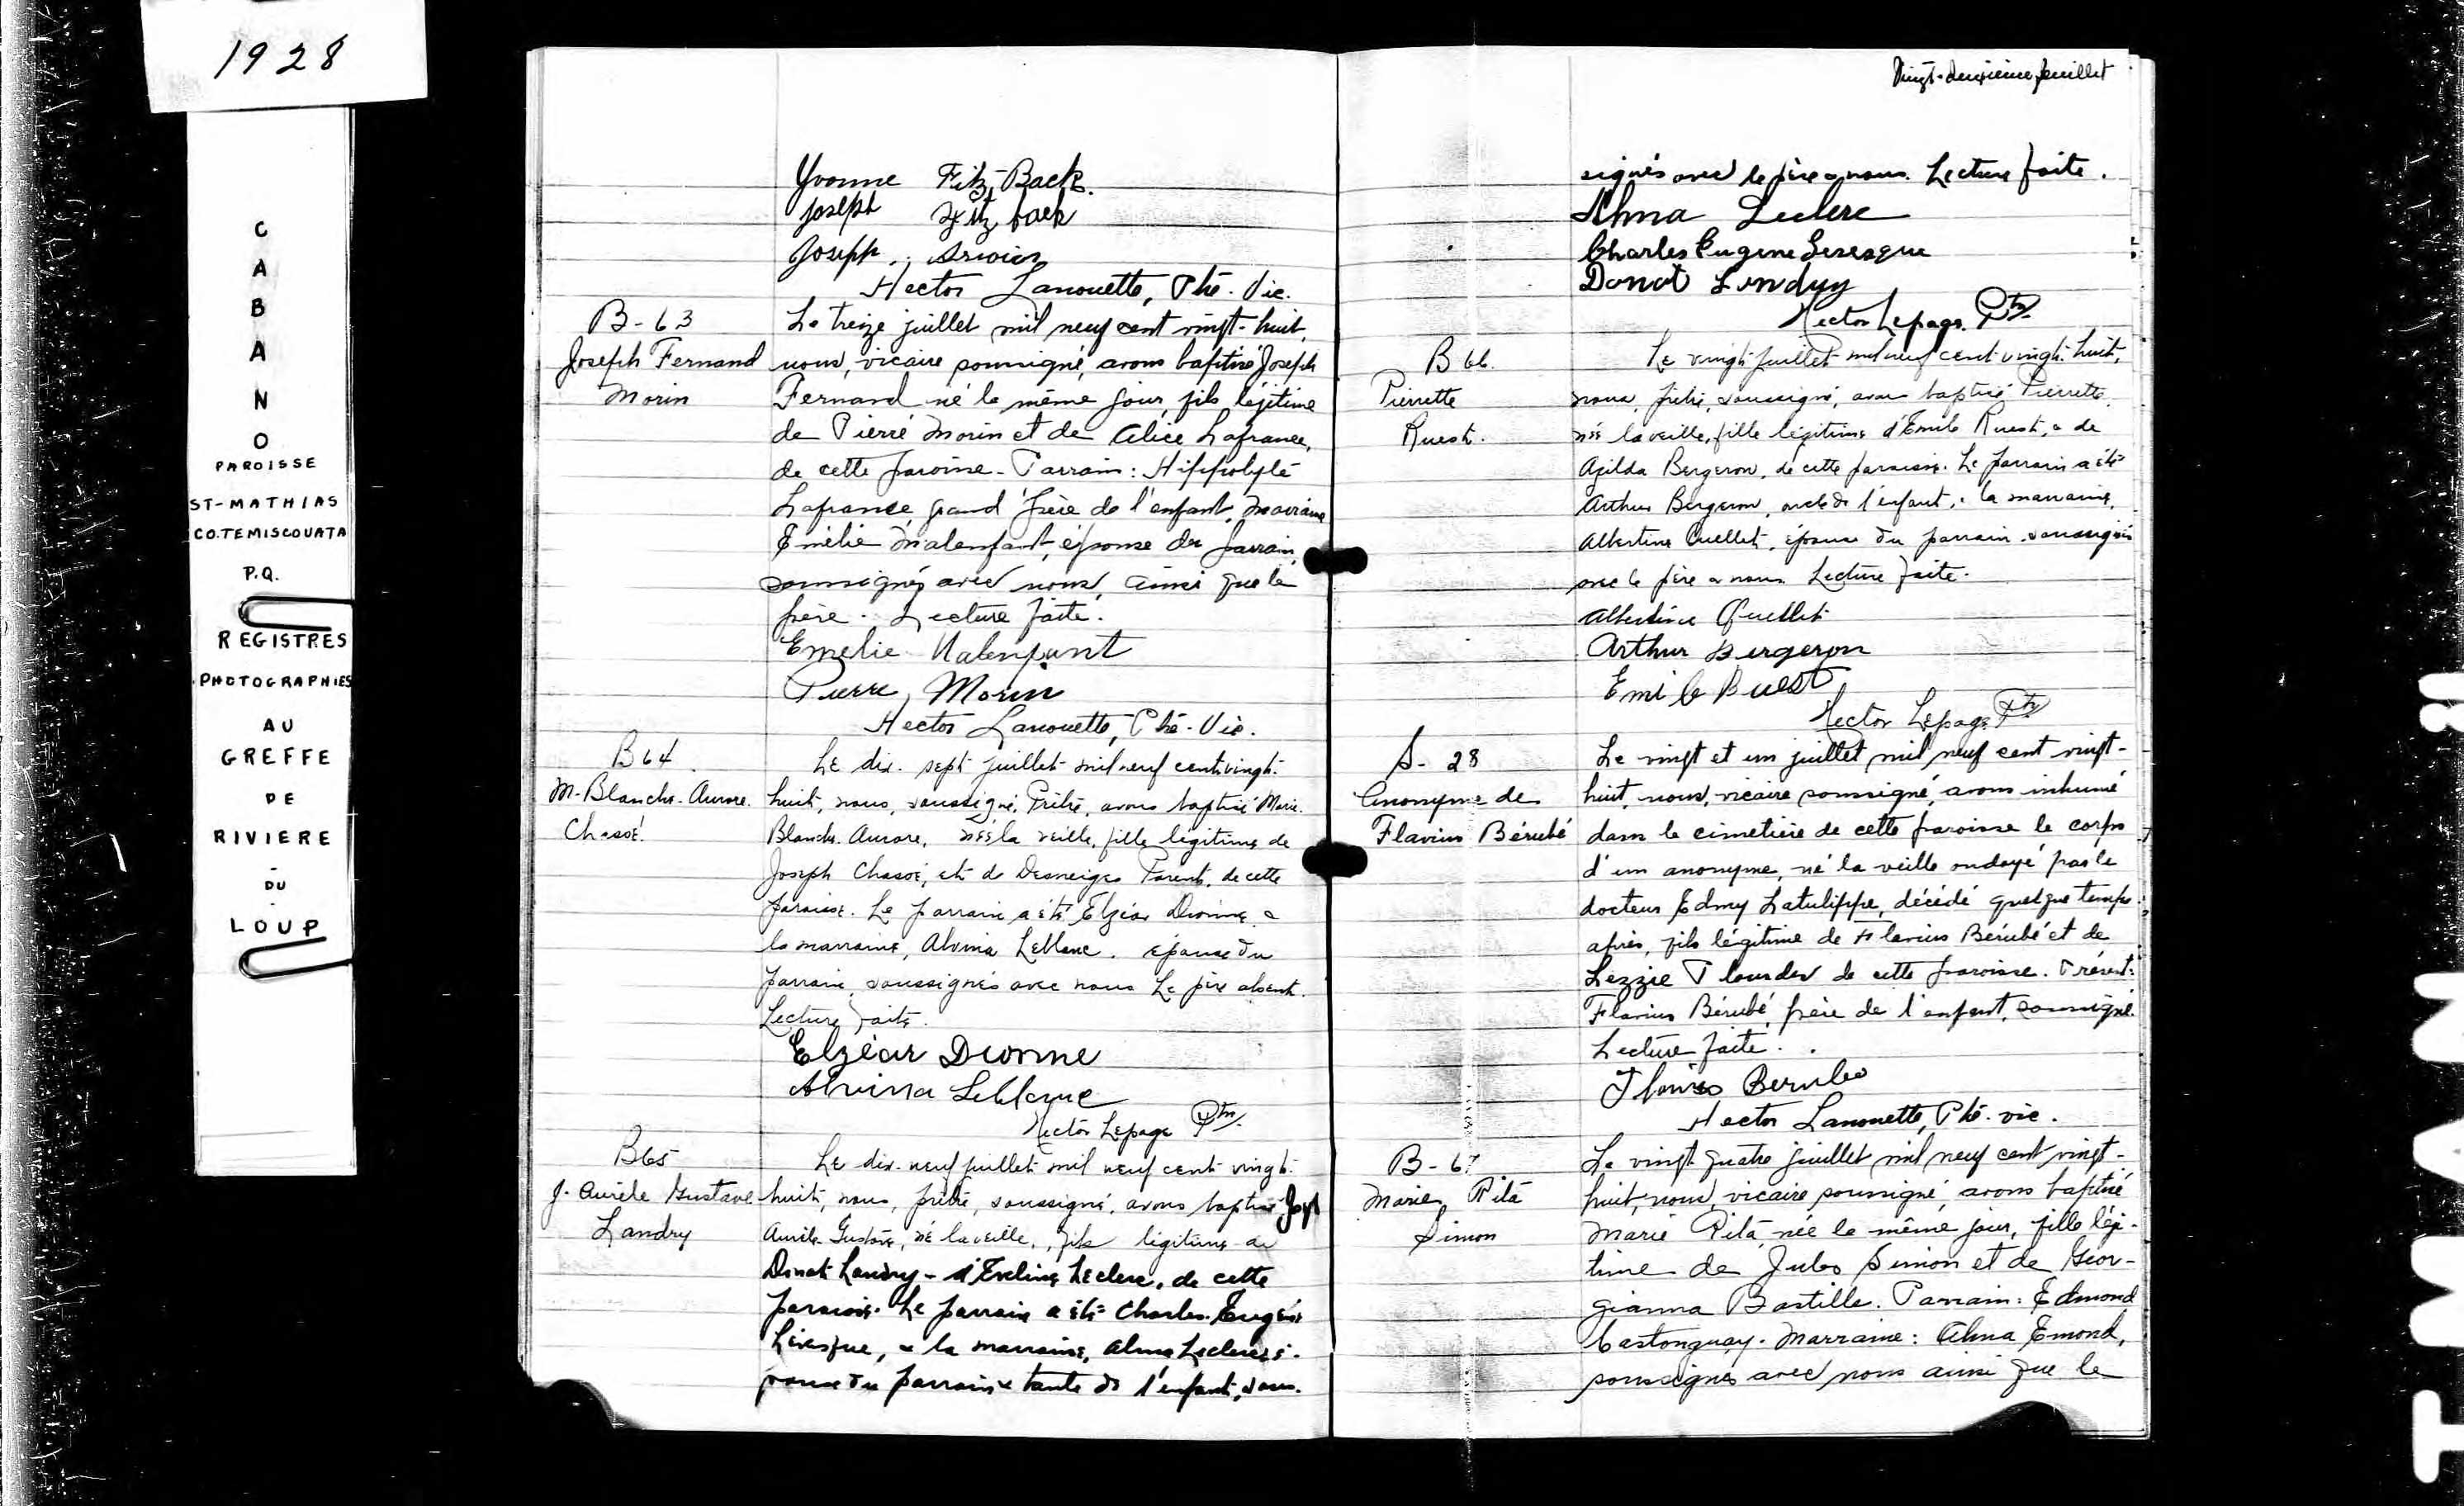 1928
CABANO
PAROISSE
ST-MATHIAS
CO.TEMISCOUATA
P.Q.
REGISTRES
PHOTOGRAPHIES
AU
GREFFE
DE
RIVIERE
-
DU
-
LOUP
Yvonne Fitz-Back.
Joseph Fitz back
Joseph
Hector Lanouette, Ptre. Vic.
B-63
Joseph Fernand
Morin
Le treize juillet mil neuf cent vingt-huit,
nous, vicaire soussigné, avons baptisé Joseph
Fernand né le même jour, fils légitime
de Pierre Morin et de Alice Lafrance,
de cette paroisse. Parrain: Hippolyte
Lafrance, grand'père de l'enfant, marraine
Emélie Malenfant, épouse du parrain,
soussignés avec nous, ainsi que le
père. Lecture faite.
Emelie Malenfant
Pierre Morin
Hector Lanouette, Ptre. Vic.
B64
M-Blanche-Aurore.
Chassé.
Le dix-sept juillet mil neuf cent vingt-
huit, nous, soussigné, Prêtre, avons baptisé Marie-
Blanche-Aurore, née la veille, fille légitime de
Joseph Chassé, et de Desneiges Parent, de cette
paroisse. Le parrain a été Elzéar Dionne &
la marraine, Alvina Leblanc, épouse du
parrain, soussignés avec nous. Le père absent.
Lecture faite.
Elzéar Dionne
Alvina Leblanc
Hector Lepage Ptre.
B65
J. Aurèle Gustave
Landry
Le dix-neuf juillet mil neuf cent vingt-
huit, nous, prêtre, soussigné, avons baptisé Jos
Aurèle-Gustave, né la veille, fils légitime de
Donat Landry & d'Eveline Leclerc, de cette
paroisse. Le parrain a été Charles-Eugène
Lévesque, & la marraine, Alma Leclerc é-
pouse du parrain & tante de l'enfant, sous-
Vingt-deuxième feuillet
signés avec le père & nous. Lecture faite.
Alma Leclerc
Charles Eugene Levesque
Donat Landry
Hector Lepage Ptre
B 66.
Pierrette
Ruest.
Le vingt juillet mil neuf cent vingt-huit,
nous, prêtre, soussigné, avons baptisé Pierrette,
née la veille, fille légitime d'Emile Ruest, & de
Agilda Bergeron, de cette paroisse. Le parrain a été
Arthur Bergeron, oncle de l'enfant, & la marraine,
Albertine Ouellet, épouse du parrain soussignés
avec le père & nous. Lecture faite.
Albertine Ouellet
Arthur Bergeron
Emile Ruest
Hector Lepage Ptre
S-28
Anonyme de
Flavius Bérubé
Le vingt et un juillet mil neuf cent vingt-
huit, nous, vicaire soussigné, avons inhumé
dans le cimetière de cette paroisse le corps
d'un anonyme, né la veille ondoyé par le
docteur Edmy Latulippe, décédé quelque temps
après, fils légitime de Flavius Bérubé et de
Lezzie Plourdes de cette paroisse. Présent:
Flavius Bérubé, père de l'enfant, soussigné.
Lecture faite.
Berube
Hector Lanouette, Ptre. vic.
B-67
Marie Rita
Simon
Le vingt-quatre juillet mil neuf cent vingt-
huit, nous, vicaire soussigné, avons baptisé
Marie Rita, née le même jour, fille légi-
time de Jules Simon et de Geor-
gianna Bastille. Parrain: Edmond
Castonguay. Marraine: Alma Emond,
soussignés avec nous ainsi que le